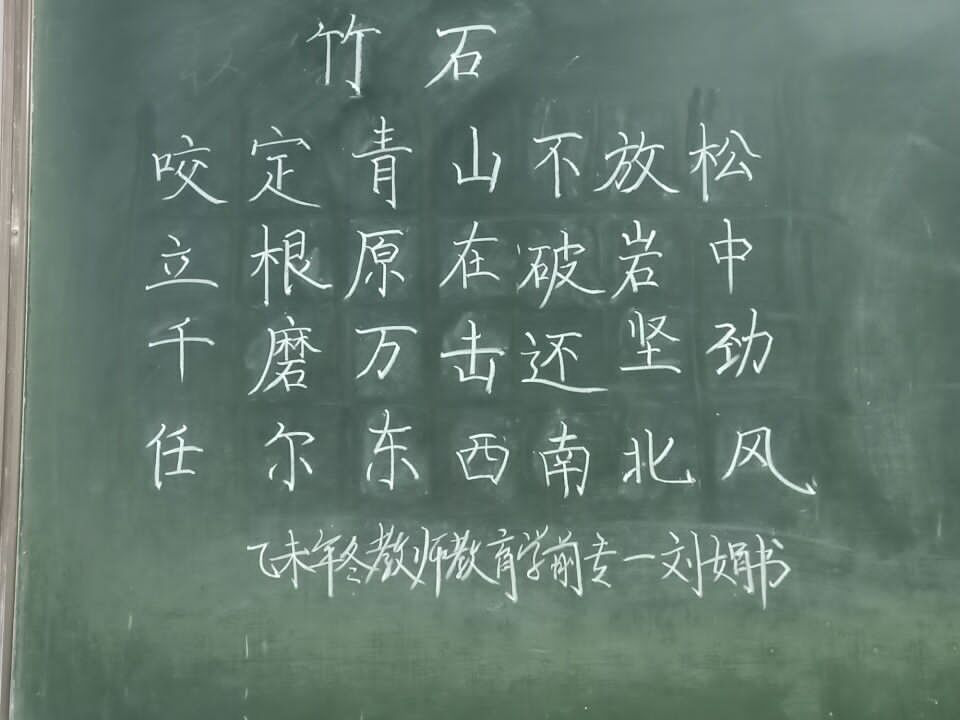 竹石
咬定青山不放松
立根原在破岩中
千磨万击还坚劲
任尔东西南北风
乙未年冬教师教育学前专一刘娟书